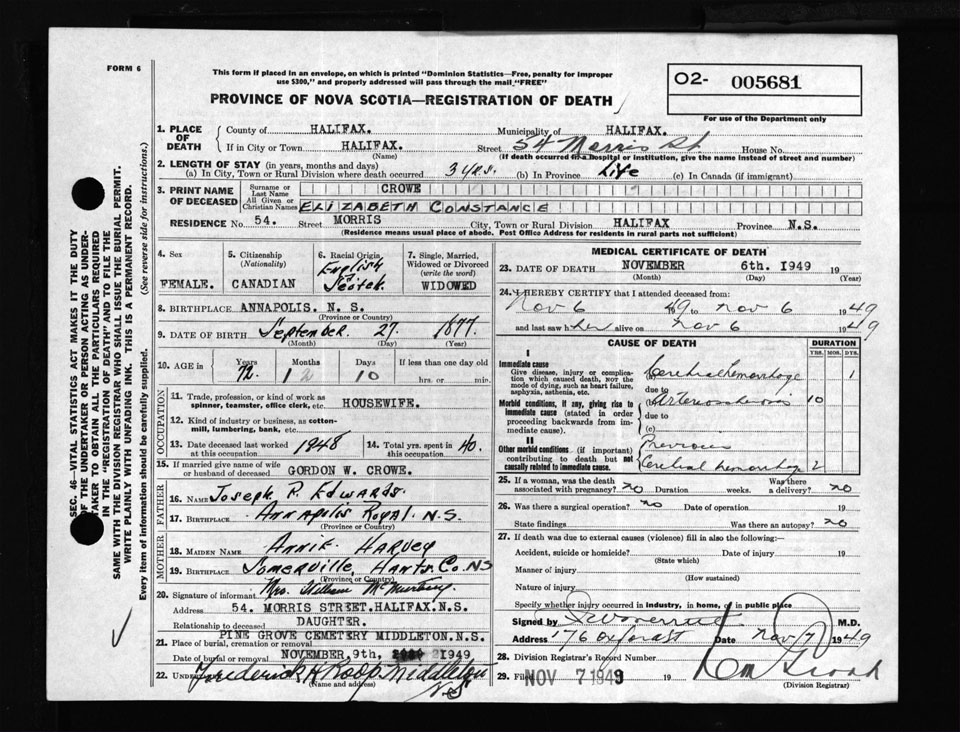 FORM 6
This form if placed in an envelope, on which is printed "Dominion Statistics—Free, penalty for improper
use $300," and properly addressed will pass through the mail "FREE"
PROVINCE OF NOVA SCOTIA—REGISTRATION OF DEATH
O2- 005681
For use of the Department only
SEC. 46—VITAL STATISTICS ACT MAKES IT THE DUTY
OF THE UNDERTAKER OR PERSON ACTING AS UNDER-
TAKER TO OBTAIN ALL THE PARTICULARS REQUIRED
IN THE "REGISTRATION OF DEATH" AND TO FILE THE
SAME WITH THE DIVISION REGISTRAR WHO SHALL ISSUE THE BURIAL PERMIT.
WRITE PLAINLY WITH UNFADING INK. THIS IS A PERMANENT RECORD.
Every item of information should be carefully supplied. (See reverse side for instructions.)
1. PLACE OF DEATH
County of HALIFAX. Municipality of HALIFAX.
If in City or Town HALIFAX. Street 54 Morris St. House No.
(Name) (If death occurred in a hospital or institution, give the name instead of street and number)
2. LENGTH OF STAY (in years, months and days)
(a) In City, Town or Rural Division where death occurred 3 yrs. (b) In Province Life (c) In Canada (if immigrant)
3. PRINT NAME OF DECEASED
Surname or Last Name CROWE
All Given or Christian Names ELIZABETH CONSTANCE
RESIDENCE No. 54. Street MORRIS City, Town or Rural Division HALIFAX Province N.S.
(Residence means usual place of abode. Post Office Address for residents in rural parts not sufficient)
4. Sex 5. Citizenship (Nationality) 6. Racial Origin 7. Single, Married, Widowed or Divorced (write the word)
FEMALE. CANADIAN English Scotch WIDOWED
8. BIRTHPLACE ANNAPOLIS. N. S.
(Province or Country)
9. DATE OF BIRTH September. 27. 1877.
(Month) (Day) (Year)
10. AGE in Years Months Days If less than one day old
72. 1 10 hrs. or min.
OCCUPATION
11. Trade, profession, or kind of work as spinner, teamster, office clerk, etc. HOUSEWIFE.
12. Kind of industry or business, as cotton-mill, lumbering, bank, etc.
13. Date deceased last worked at this occupation 1948 14. Total yrs. spent in this occupation 40.
15. If married give name of wife or husband of deceased GORDON W. CROWE.
FATHER
16. NAME Joseph R. Edwards.
17. BIRTHPLACE Annapolis Royal. N.S.
(Province or Country)
MOTHER
18. MAIDEN NAME Annie Harvey
19. BIRTHPLACE Somerville, Hants. Co. NS
(Province or Country)
20. Signature of informant Mrs. William
Address 54. MORRIS STREET.HALIFAX.N.S.
Relationship to deceased DAUGHTER.
21. Place of burial, cremation or removal PINE GROVE CEMETERY MIDDLETON.N.S.
Date of burial or removal NOVEMBER.9th, 1949
22. Undertaker Frederick H Roop. Middleton
(Name and address) N.S.
MEDICAL CERTIFICATE OF DEATH
23. DATE OF DEATH NOVEMBER 6th. 1949 19
(Month) (Day) (Year)
24. I HEREBY CERTIFY that I attended deceased from:
Nov 6 1949 to Nov 6 1949
and last saw her alive on Nov 6 1949
CAUSE OF DEATH DURATION
YRS. MOS. DYS.
I
Immediate cause
Give disease, injury or complication which caused death, NOT the mode of dying, such as heart failure, asphyxia, asthenia, etc.
Cerebral hemorrhage 1
due to
Morbid conditions, if any, giving rise to immediate cause (stated in order proceeding backwards from immediate cause).
Arteriosclerosis 10
due to
(c)
II
Other morbid conditions (if important) contributing to death but not causally related to immediate cause.
Previous
Cerebral hemorrhage 2
25. If a woman, was the death associated with pregnancy? no Duration weeks. Was there a delivery? no
26. Was there a surgical operation? no Date of operation 19
State findings Was there an autopsy? no
27. If death was due to external causes (violence) fill in also the following:
Accident, suicide or homicide? Date of injury 19
(State which)
Manner of injury
(How sustained)
Nature of injury
Specify whether injury occurred in industry, in home, or in public place
Signed by M.D.
Address 176 Date Nov 7 1949
28. Division Registrar's Record Number
29. Filed NOV 7 1949
(Division Registrar)